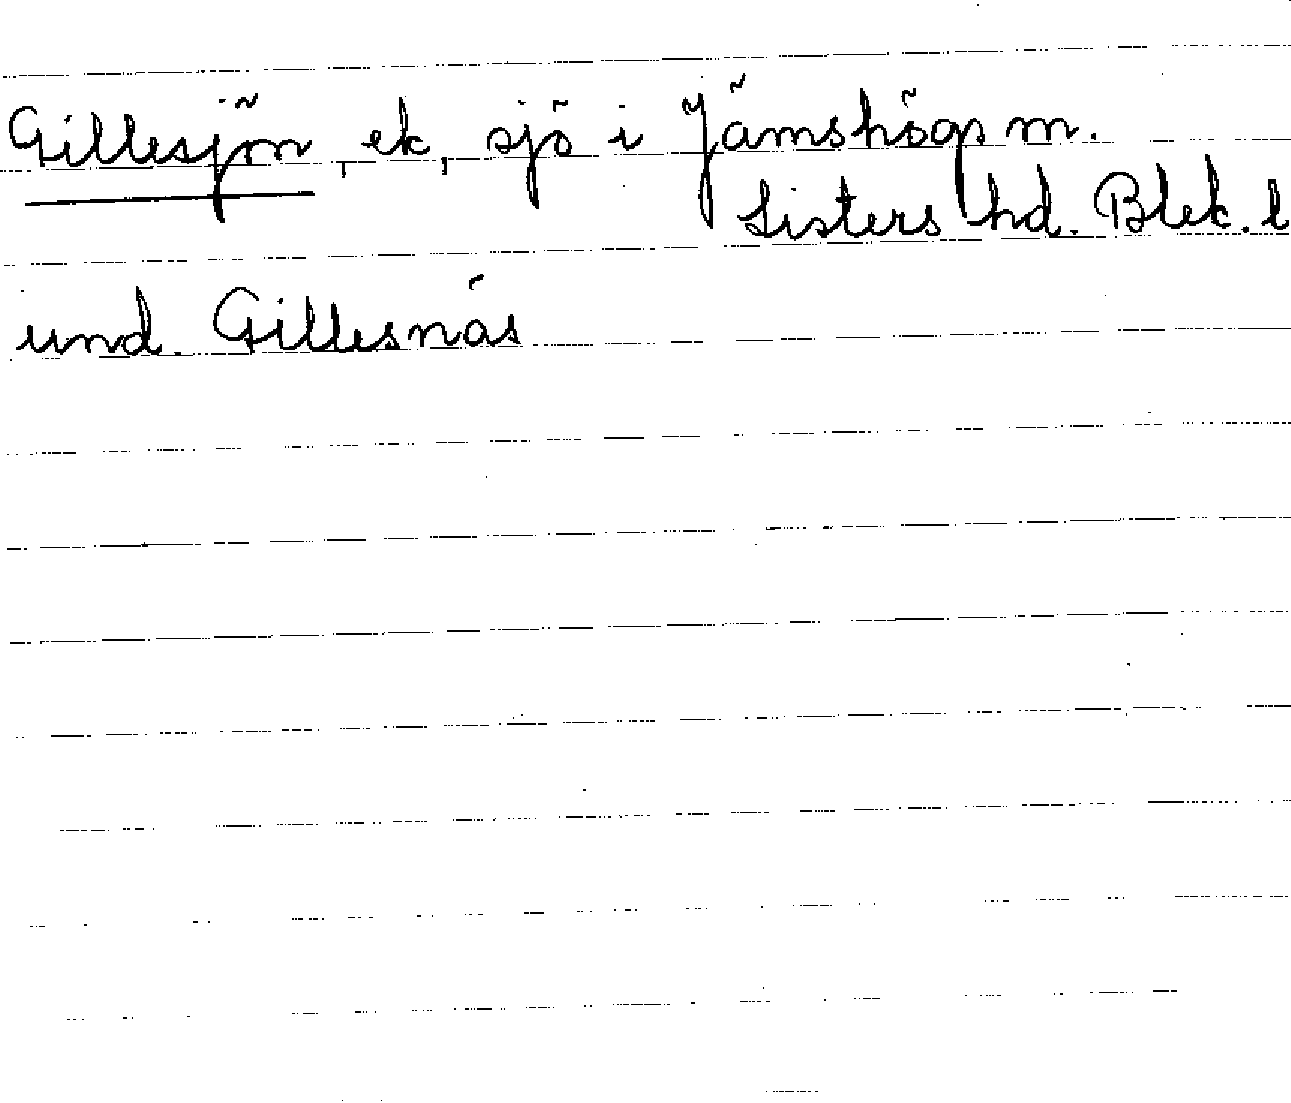 Gillesjön, ek, sjö i Jämshögs m.
Listers hd. Blek. l
und. Gillesnäs